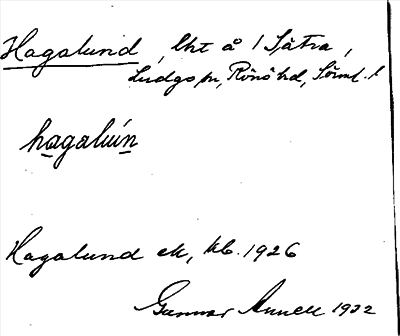 Hagalund, lht å 1 Sätra,
Ludgo sn, Rönö hd, Sörml. l
hagalún
Hagalund ek, kb. 1926
Gunnar 1932